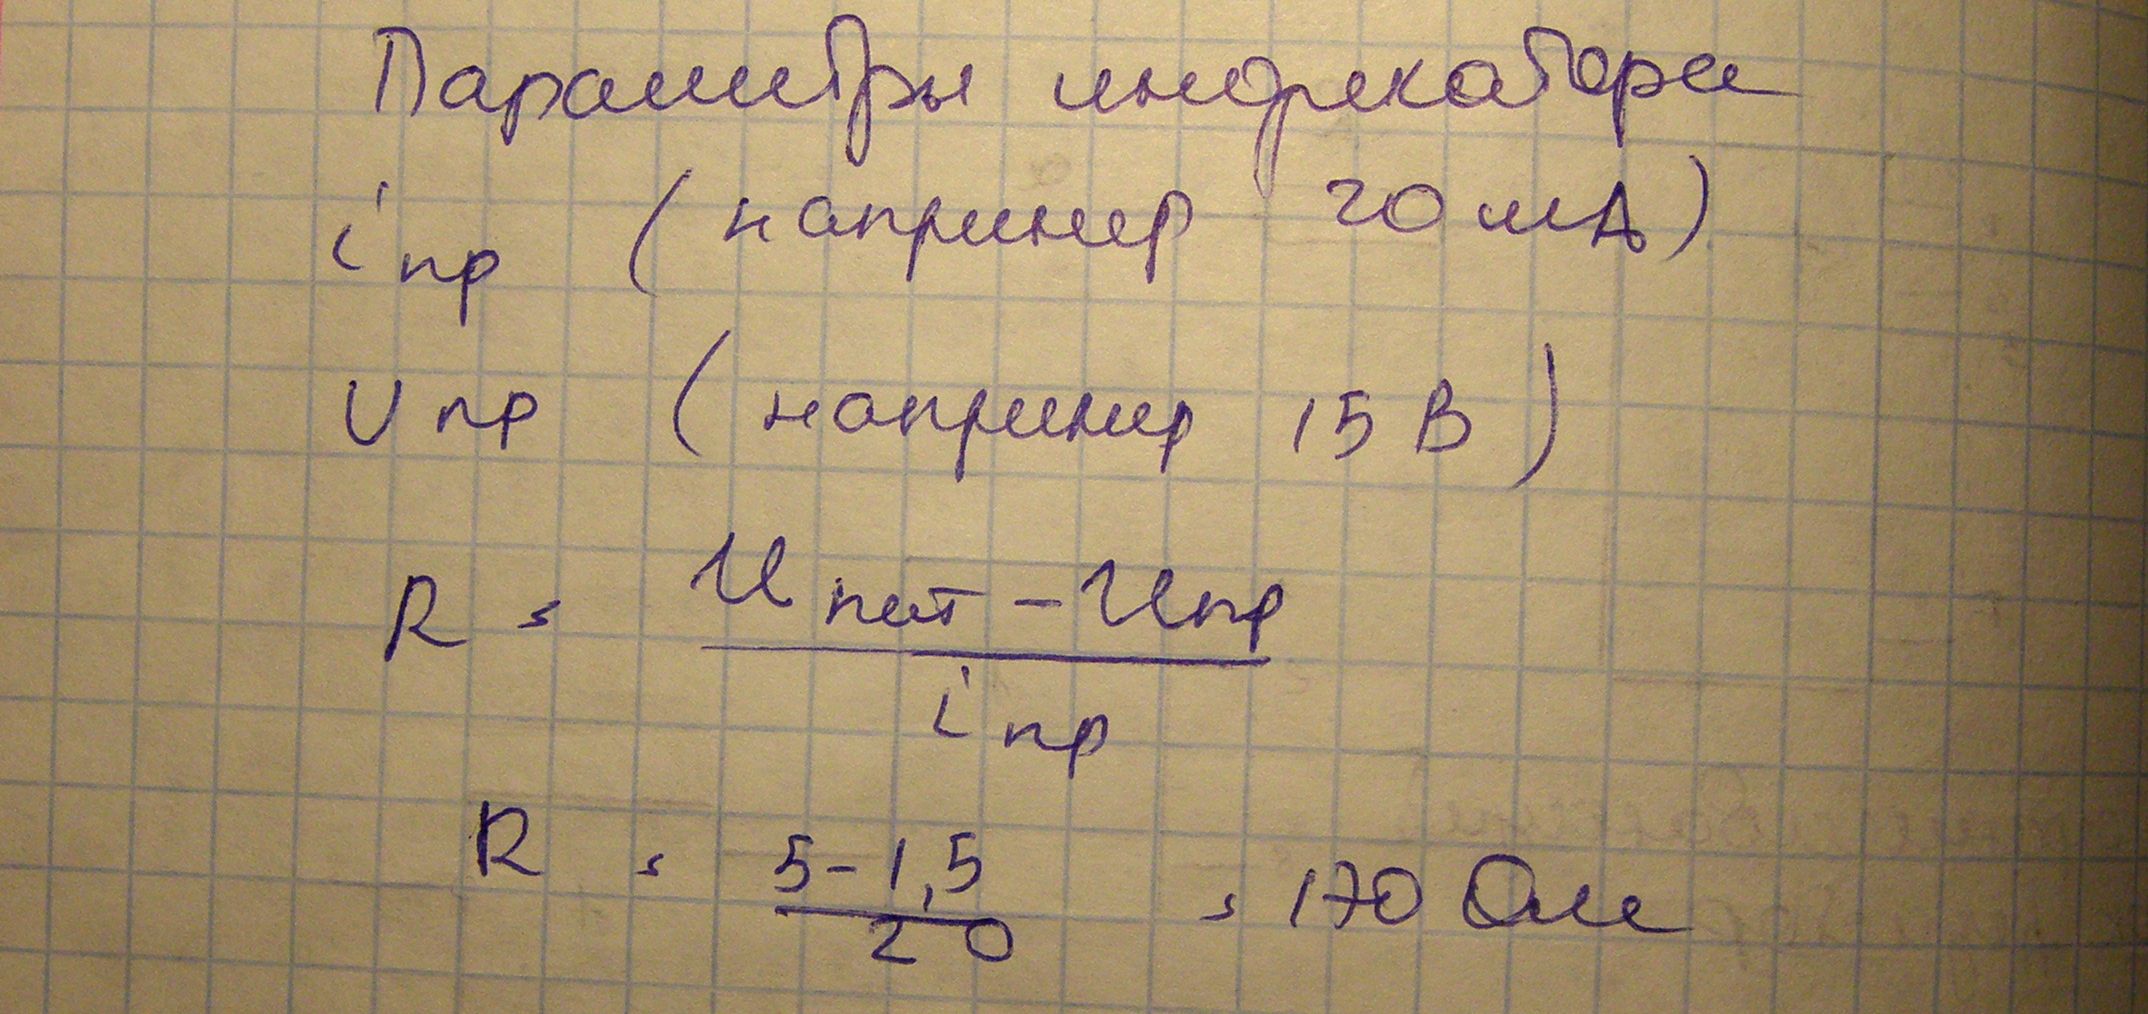 Параметры индикатора
iпр (например 20 мА)
Uпр (например 15 В)
R = Uпит - Uпр
iпр
R = 5 - 1,5 = 170 Ом
20